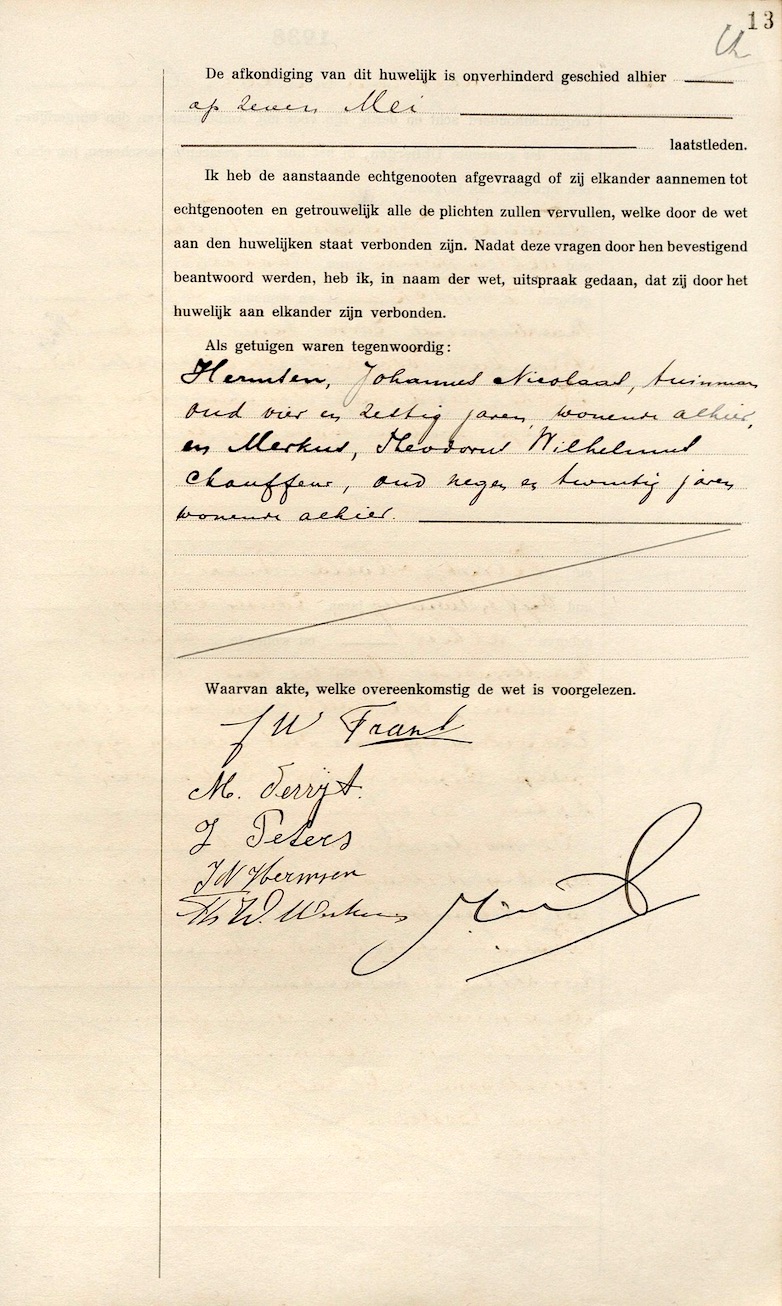 13
De afkondiging van dit huwelijk is onverhinderd geschied alhier
op zeven Mei
laatstleden.
Ik heb de aanstaande echtgenooten afgevraagd of zij elkander aannemen tot
echtgenooten en getrouwelijk alle de plichten zullen vervullen, welke door de wet
aan den huwelijken staat verbonden zijn. Nadat deze vragen door hen bevestigend
beantwoord werden, heb ik, in naam der wet, uitspraak gedaan, dat zij door het
huwelijk aan elkander zijn verbonden.
Als getuigen waren tegenwoordig:
Hermsen, Johannes Nicolaas, tuinman
oud vier en zestig jaren, wonende alhier,
en Merkus, Theodorus Wilhelmus
chauffeur, oud negen en twintig jaren
wonende alhier.
Waarvan akte, welke overeenkomstig de wet is voorgelezen.
J W Frans
M. Derrijt.
J Peters
J N Hermsen
Th. W. Merkus